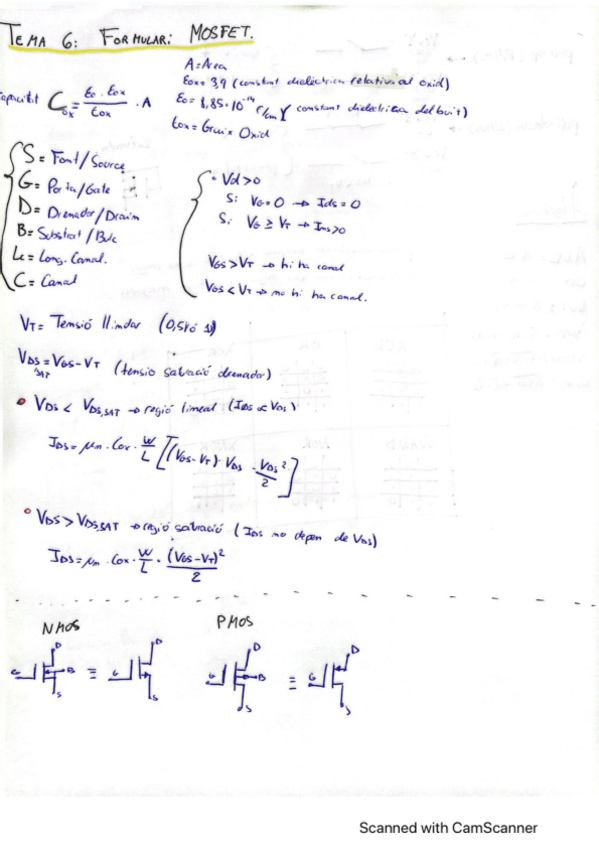 TEMA 6: FORMULARI MOSFET.
A = Àrea
εox = 3,9 (constant dielèctrica relativa al oxid)
Capacitat Cox = ε0 · εox / tox · A
ε0 = 8,85·10^-14 F/cm (constant dielèctrica del buit)
tox = Gruix Oxid
S = Font/Source
G = Porta/Gate
D = Drenador/Drain
B = Substrat/Bulk
L = Long. Canal.
C = Canal
• Vd>0
Si VG = 0 → IDS = 0
Si VG ≥ VT → IDS>0
VGS > VT → hi ha canal
VGS < VT → no hi ha canal.
VT = Tensió llindar (0,5V ó 1)
VDS SAT = VGS - VT (tensio saturació drenador)
• VDS < VDS,SAT → regió lineal (IDS ∝ VDS)
IDS = μn · Cox · W/L [(VGS-VT) · VDS - VDS²/2]
• VDS > VDS,SAT → regió saturació (IDS no depen de VDS)
IDS = μn · Cox · W/L · (VGS-VT)²/2
NMOS PMOS
G D B S ≡ G D S G D B S ≡ G D S
Scanned with CamScanner